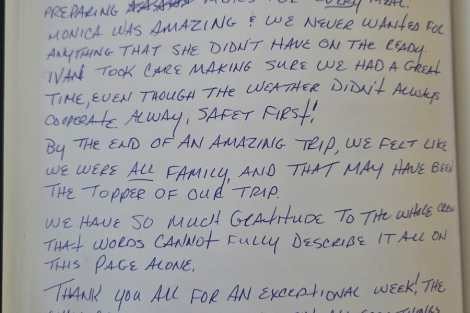 PREPARING MEALS FOR EVERY MEAL.
MONICA WAS AMAZING & WE NEVER WANTED FOR
ANYTHING THAT SHE DIDN'T HAVE ON THE READY.
IVAN TOOK CARE MAKING SURE WE HAD A GREAT
TIME, EVEN THOUGH THE WEATHER DIDN'T ALWAYS
COOPERATE. ALWAY, SAFET FIRST!
BY THE END OF AN AMAZING TRIP, WE FELT LIKE
WE WERE ALL FAMILY, AND THAT MAY HAVE BEEN
THE TOPPER OF OUR TRIP.
WE HAVE SO MUCH GRATITUDE TO THE WHOLE CREW
THAT WORDS CANNOT FULLY DESCRIBE IT ALL ON
THIS PAGE ALONE.
THANK YOU ALL FOR AN EXCEPTIONAL WEEK! THE